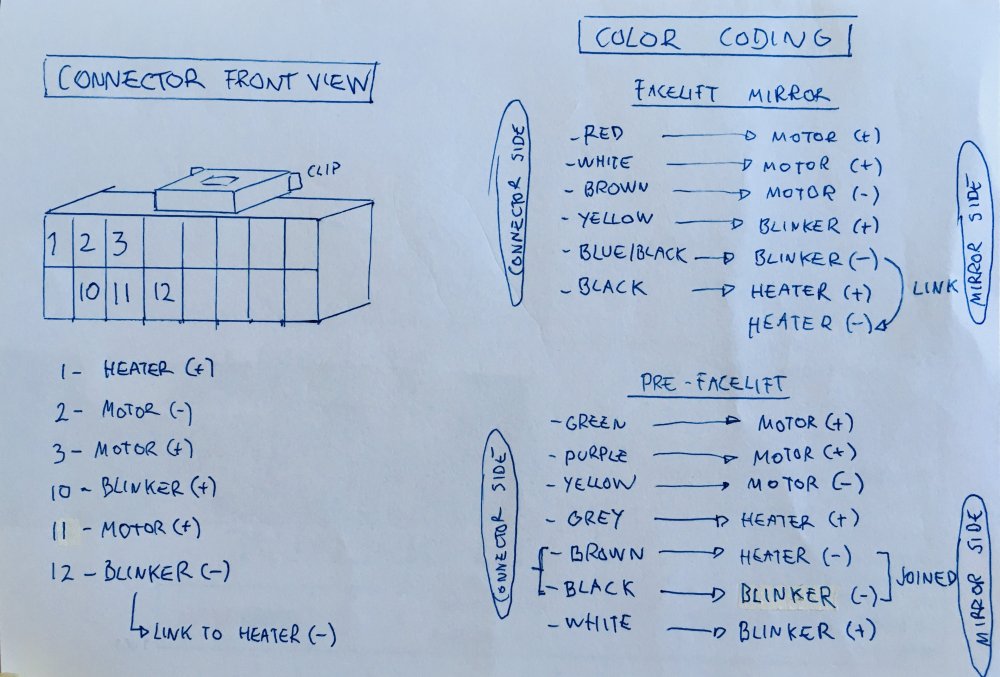 CONNECTOR FRONT VIEW
CLIP
1 2 3
10 11 12
1 - HEATER (+)
2 - MOTOR (-)
3 - MOTOR (+)
10 - BLINKER (+)
11 - MOTOR (+)
12 - BLINKER (-)
LINK TO HEATER (-)
COLOR CODING
FACELIFT MIRROR
CONNECTOR SIDE
- RED → MOTOR (+)
- WHITE → MOTOR (+)
- BROWN → MOTOR (-)
- YELLOW → BLINKER (+)
- BLUE/BLACK → BLINKER (-)
- BLACK → HEATER (+)
HEATER (-)
LINK
MIRROR SIDE
PRE - FACELIFT
CONNECTOR SIDE
- GREEN → MOTOR (+)
- PURPLE → MOTOR (+)
- YELLOW → MOTOR (-)
- GREY → HEATER (+)
- BROWN → HEATER (-)
- BLACK → BLINKER (-)
- WHITE → BLINKER (+)
JOINED
MIRROR SIDE